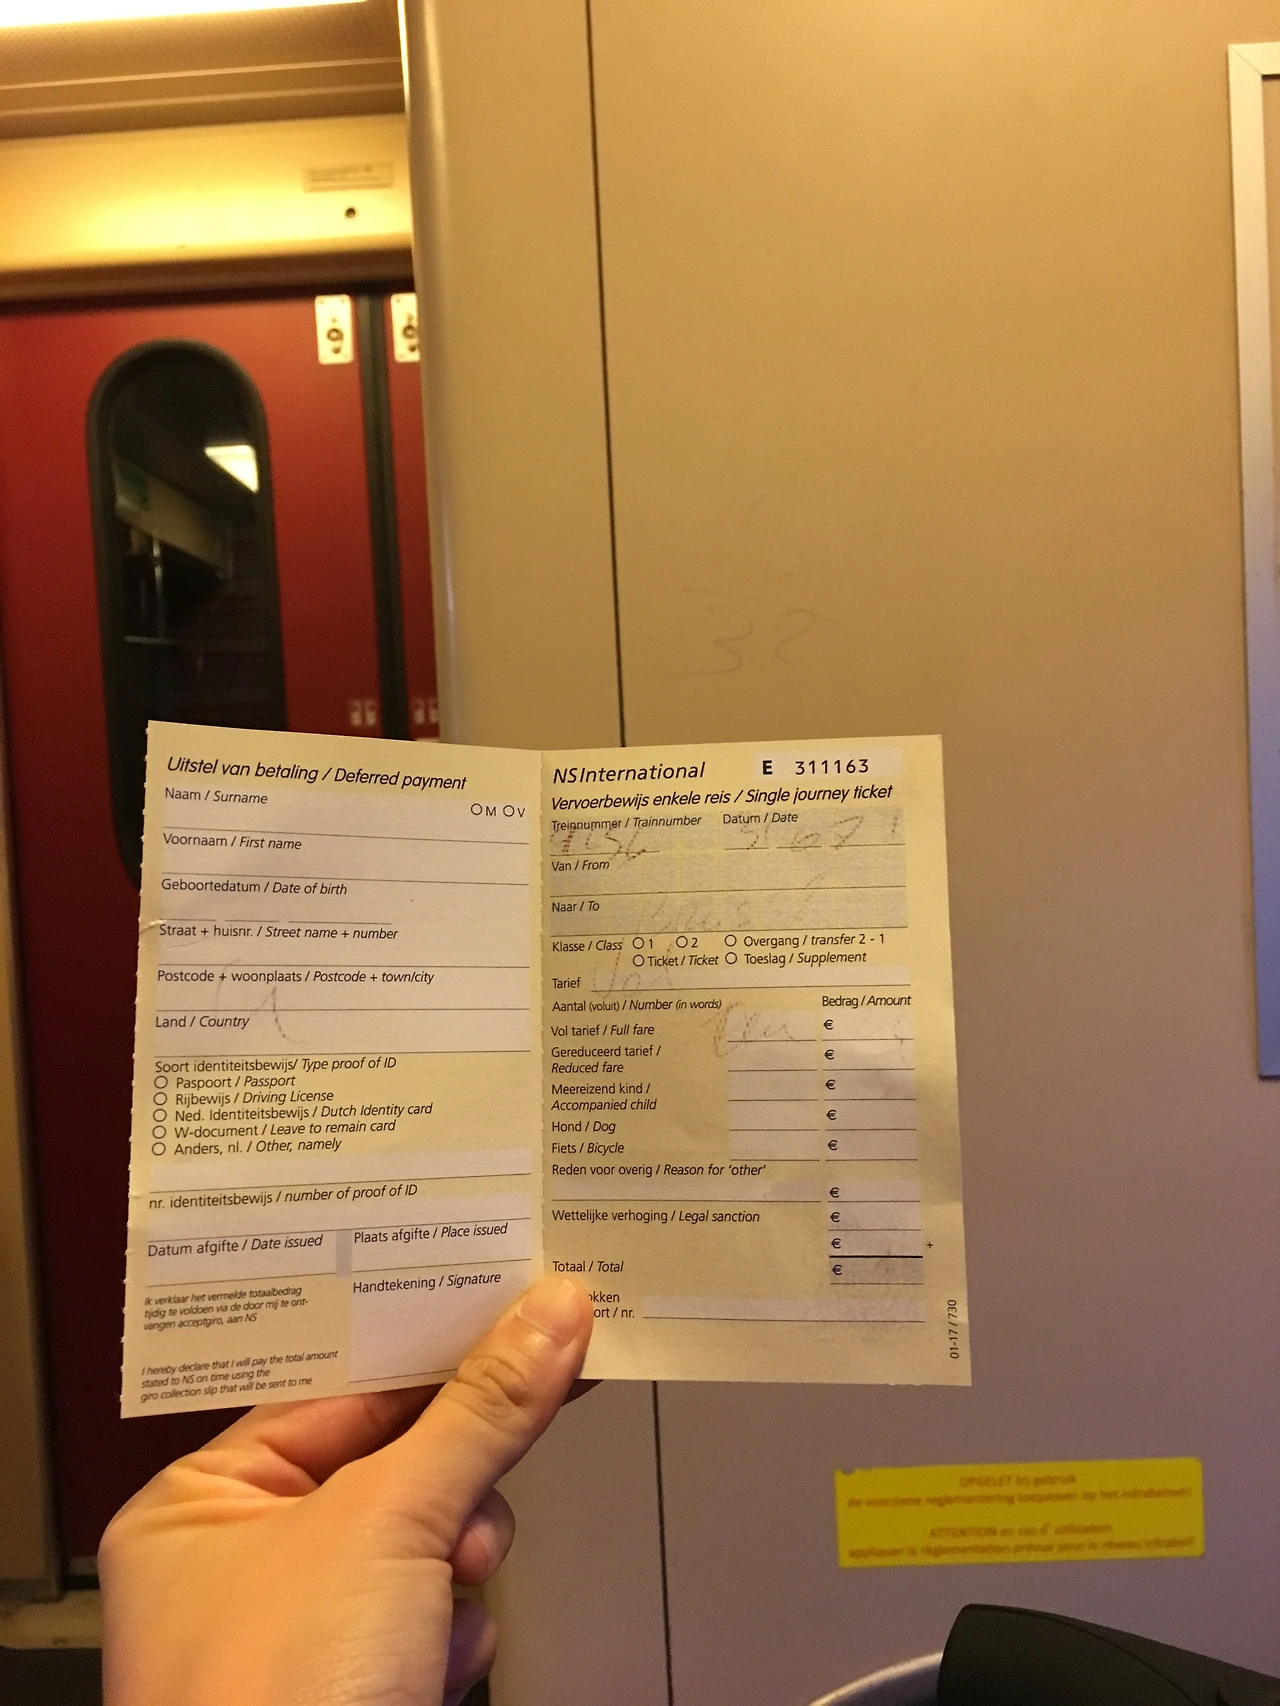 Uitstel van betaling / Deferred payment
Naam / Surname
M V
Voornaam / First name
Geboortedatum / Date of birth
Straat + huisnr. / Street name + number
Postcode + woonplaats / Postcode + town/city
Land / Country
Soort identiteitsbewijs/ Type proof of ID
Paspoort / Passport
Rijbewijs / Driving License
Ned. Identiteitsbewijs / Dutch Identity card
W-document / Leave to remain card
Anders, nl. / Other, namely
nr. identiteitsbewijs / number of proof of ID
Datum afgifte / Date issued
Plaats afgifte / Place issued
Handtekening / Signature
Ik verklaar het vermelde totaalbedrag
tijdig te voldoen via de door mij te ont-
vangen acceptgiro, aan NS
I hereby declare that I will pay the total amount
stated to NS on time using the
giro collection slip that will be sent to me
NS International E 311163
Vervoerbewijs enkele reis / Single journey ticket
Treinnummer / Trainnumber Datum / Date
Van / From
Naar / To
Klasse / Class 1 2 Overgang / transfer 2 - 1
Ticket / Ticket Toeslag / Supplement
Tarief
Aantal (voluit) / Number (in words) Bedrag / Amount
Vol tarief / Full fare €
Gereduceerd tarief /
Reduced fare €
Meereizend kind /
Accompanied child €
Hond / Dog €
Fiets / Bicycle €
Reden voor overig / Reason for 'other'
€
Wettelijke verhoging / Legal sanction €
€ +
Totaal / Total €
okken
ort / nr.
01-17 / 730
OPGELET bij gebruik
ATTENTION en cas d'utilisation